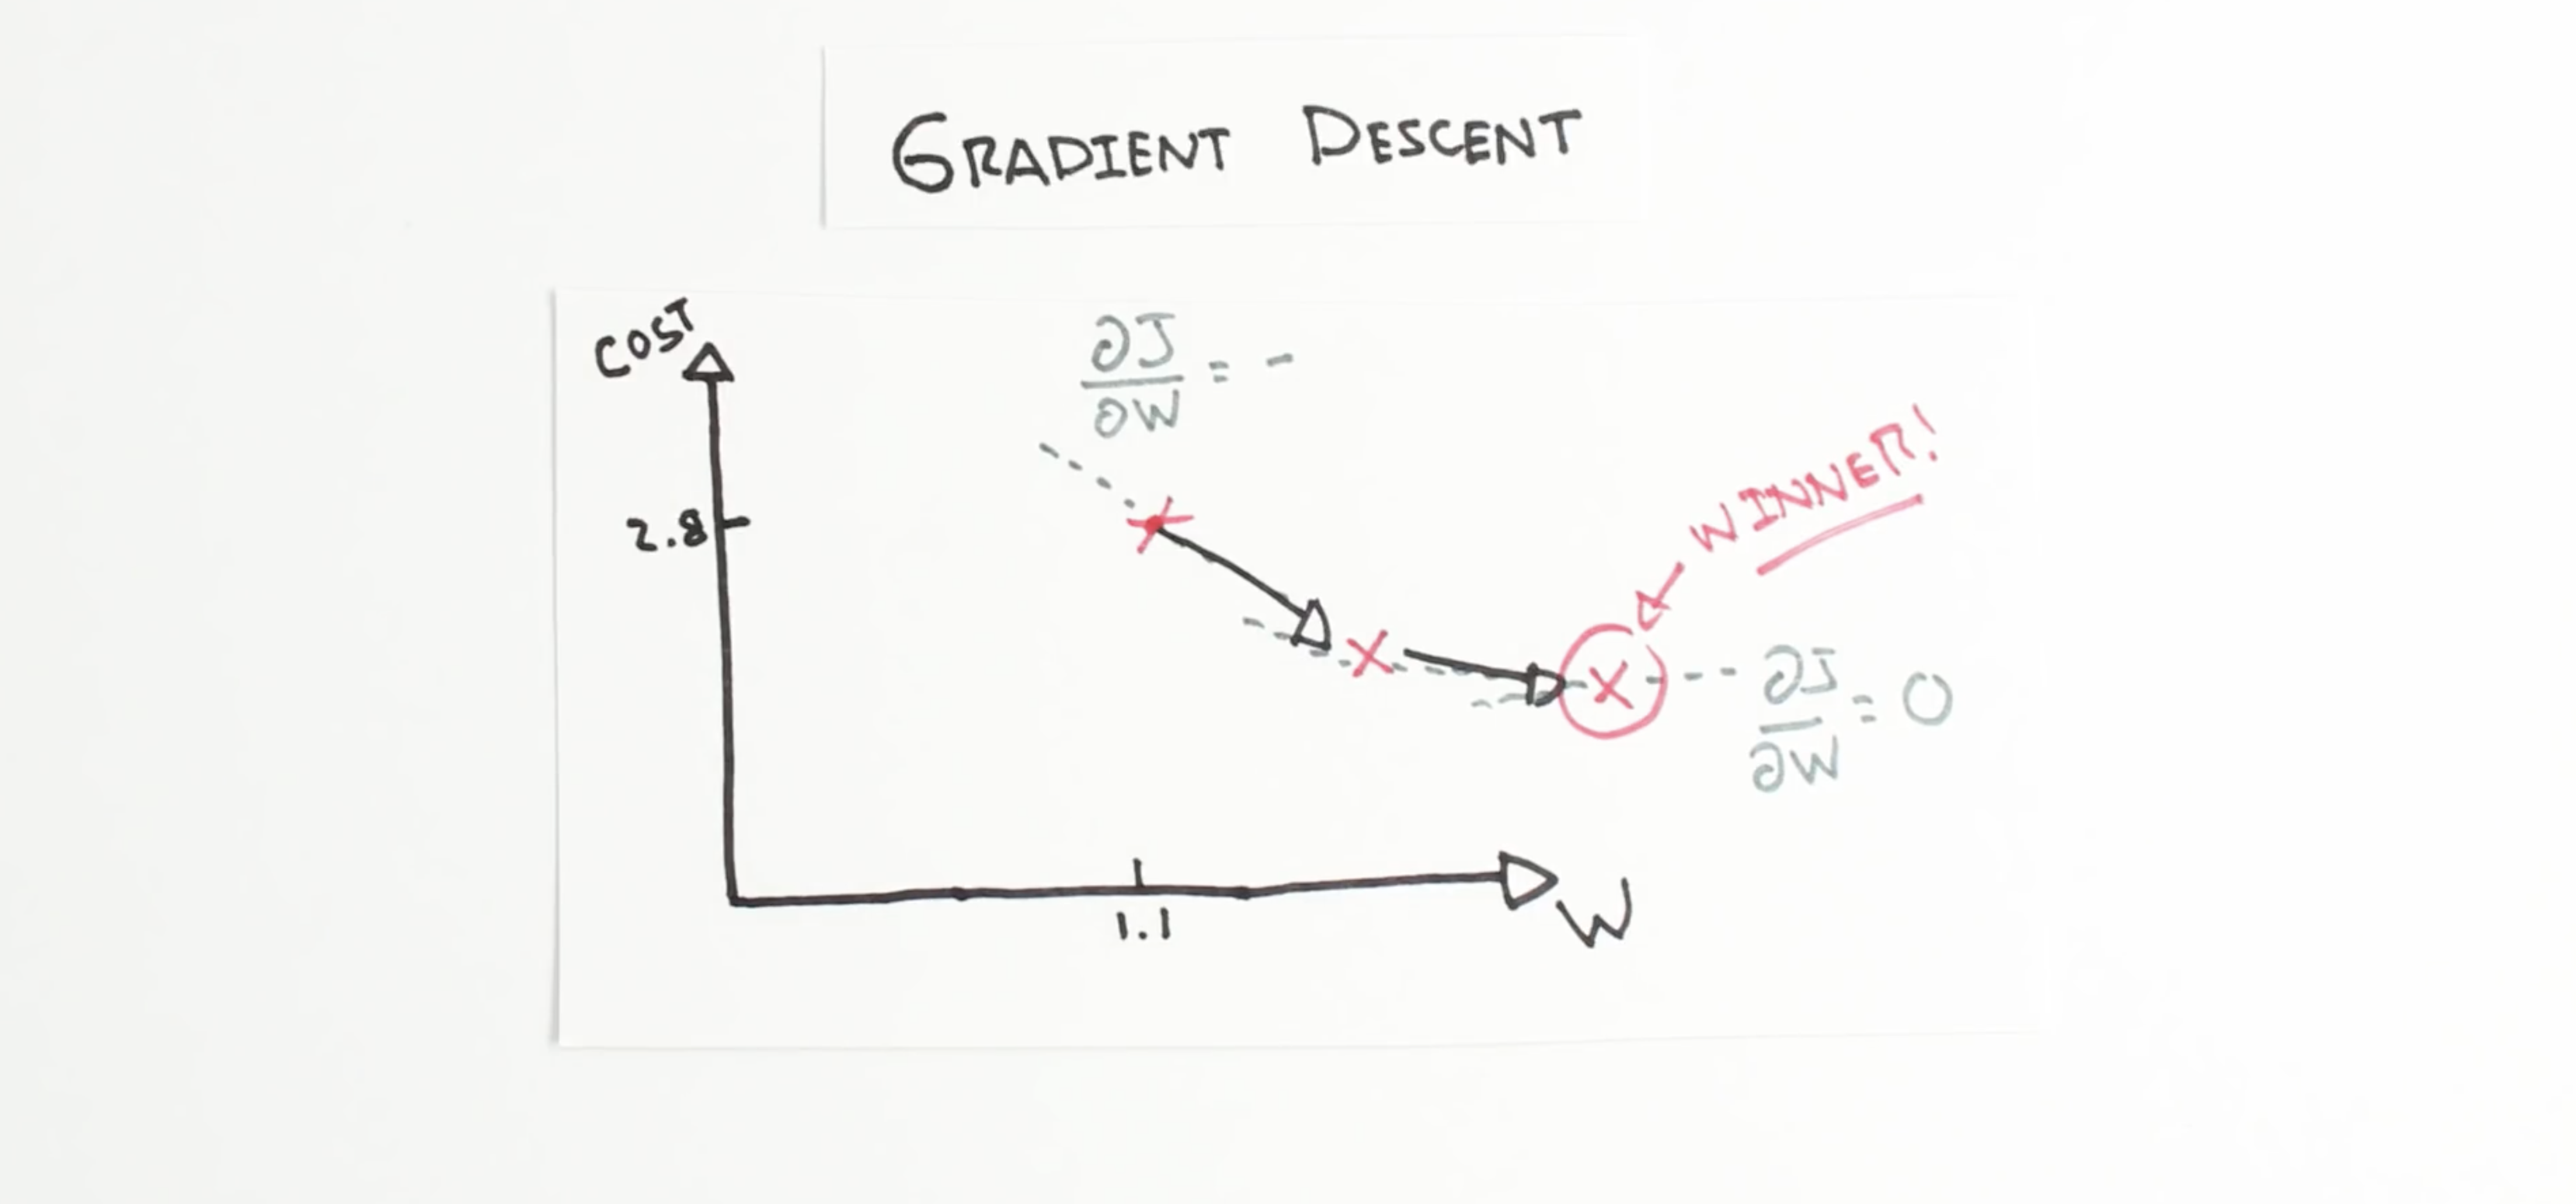 GRADIENT DESCENT
COST
∂J
∂W
= -
2.8
WINNER!
∂J
∂W
= 0
1.1
W